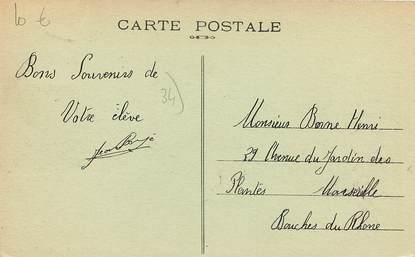 10 €
CARTE POSTALE
Bons Souvenirs de
Votre élève
34)
Monsieur Borne Henri
29 Avenue du Jardin des
Plantes Marseille
Bouches du Rhone